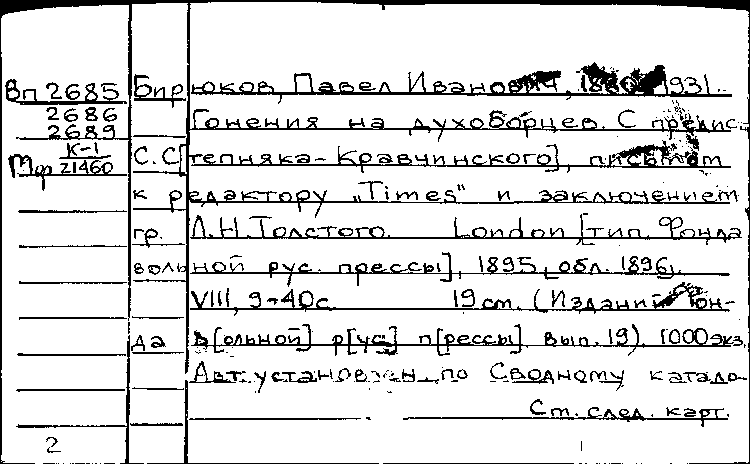 Вп 2685 Бирюков, Павел Иванович, 1860-1931.
2686 Гонения на духоборцев. С предис-
2689
Мф К-1/21460 С. С[тепняка-Кравчинского], письмом
к редактору „Times" и заключением
гр. Л.Н.Толстого. London [тип. Фонда
вольной рус. прессы], 1895 [обл. 1896].
VIII, 9-40с. 19 cm. (Изданий Фон-
да в[ольной] р[ус] п[рессы]. Вып. 19). 1000экз.
Авт. установлен по Сводному катало-
См. след. карт.
2